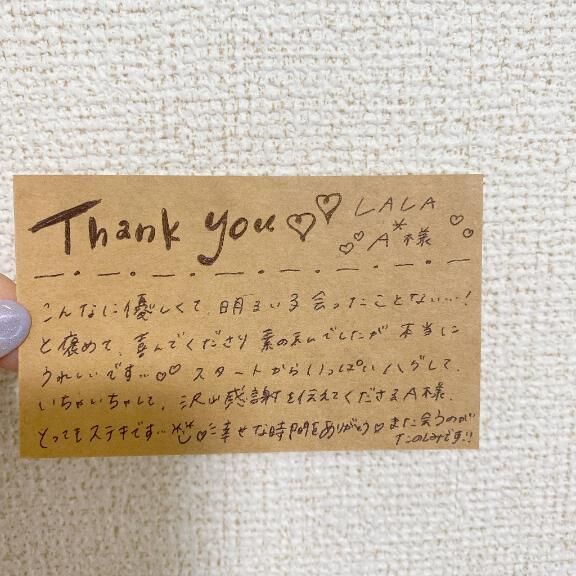 Thank you♡♡ LALA
A*様
こんなに優しくて、明るい子会ったことない…!
と褒めて、喜んでくださり 素の私でしたが 本当に
うれしいです…♡♡ スタートからいっぱいハグして、
いちゃいちゃして、沢山感謝を伝えてくださるA様、
とってもステキです…♡に幸せな時間をありがとう♡また会うのが
たのしみです!!